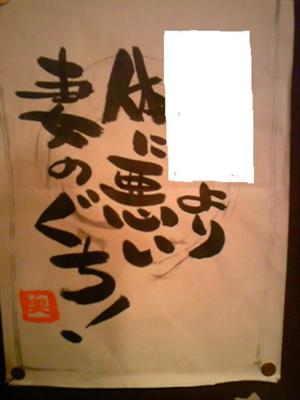 より
体に悪い
妻のぐち!